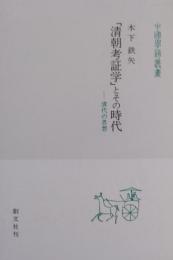 中國學藝叢書
木下鉄矢
「清朝考証学」とその時代
——清代の思想
創文社刊